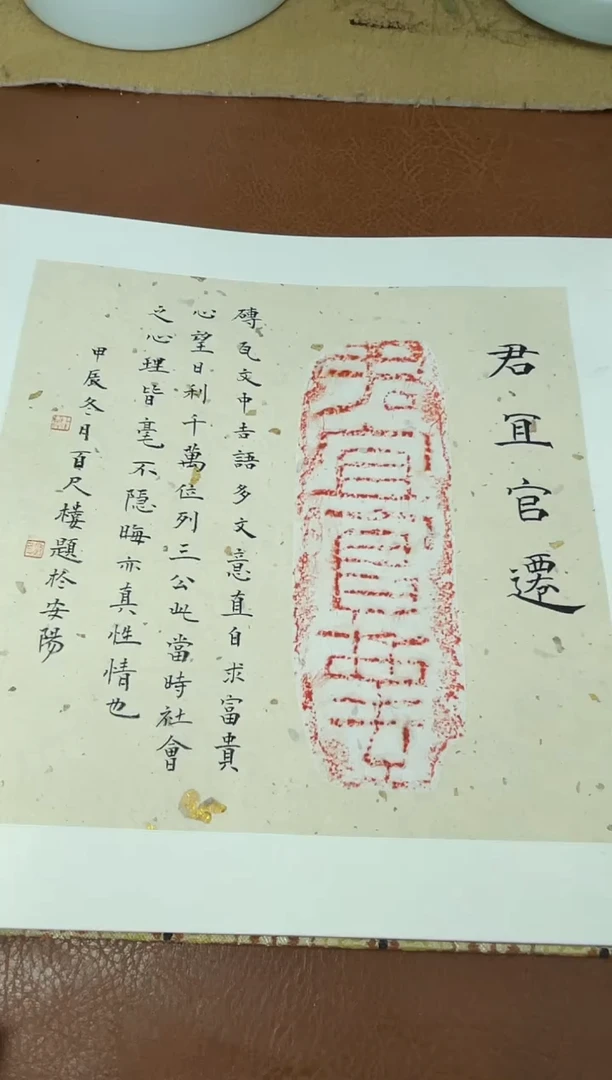 君宜官遷
君宜官遷
磚瓦文中吉語多文意直白求富貴
心望日利千萬位列三公此當時社會
之心理皆毫不隱晦亦真性情也
甲辰冬月百尺樓題於安陽